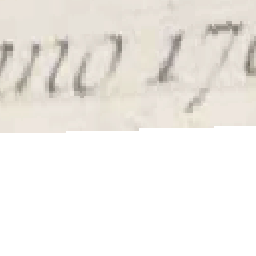 nno 170